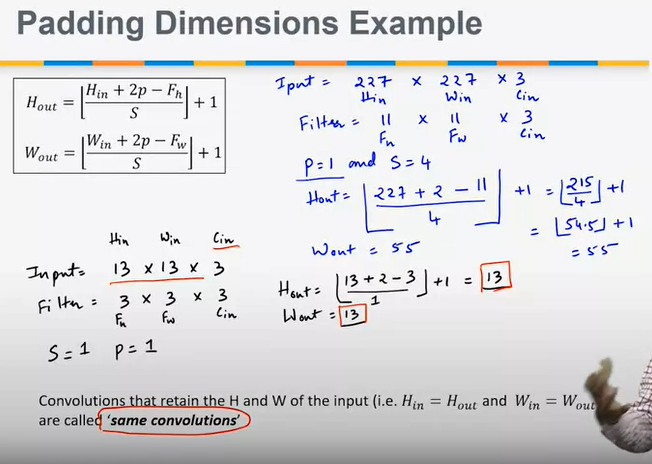 Padding Dimensions Example
H_out = ⌊(H_in + 2p − F_h)/S⌋ + 1
W_out = ⌊(W_in + 2p − F_w)/S⌋ + 1
Iput = 227 × 227 × 3
Hin Win Cin
Filter = 11 × 11 × 3
Fh Fw Cin
P=1 and S=4
Hout = ⌊(227 + 2 − 11)/4⌋ +1 = ⌊215/4⌋ +1
= ⌊54.5⌋ +1
= 55
Wout = 55
Hin Win Cin
Input = 13 × 13 × 3
Filter = 3 × 3 × 3
Fh Fw Cin
S=1 P=1
Hout = ⌊(13+2−3)/1⌋ +1 = 13
Wout = 13
Convolutions that retain the H and W of the input (i.e. H_in = H_out and W_in = W_out
are called 'same convolutions'